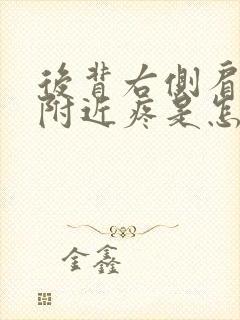 後背右側肩
附近疼是怎
金鑫